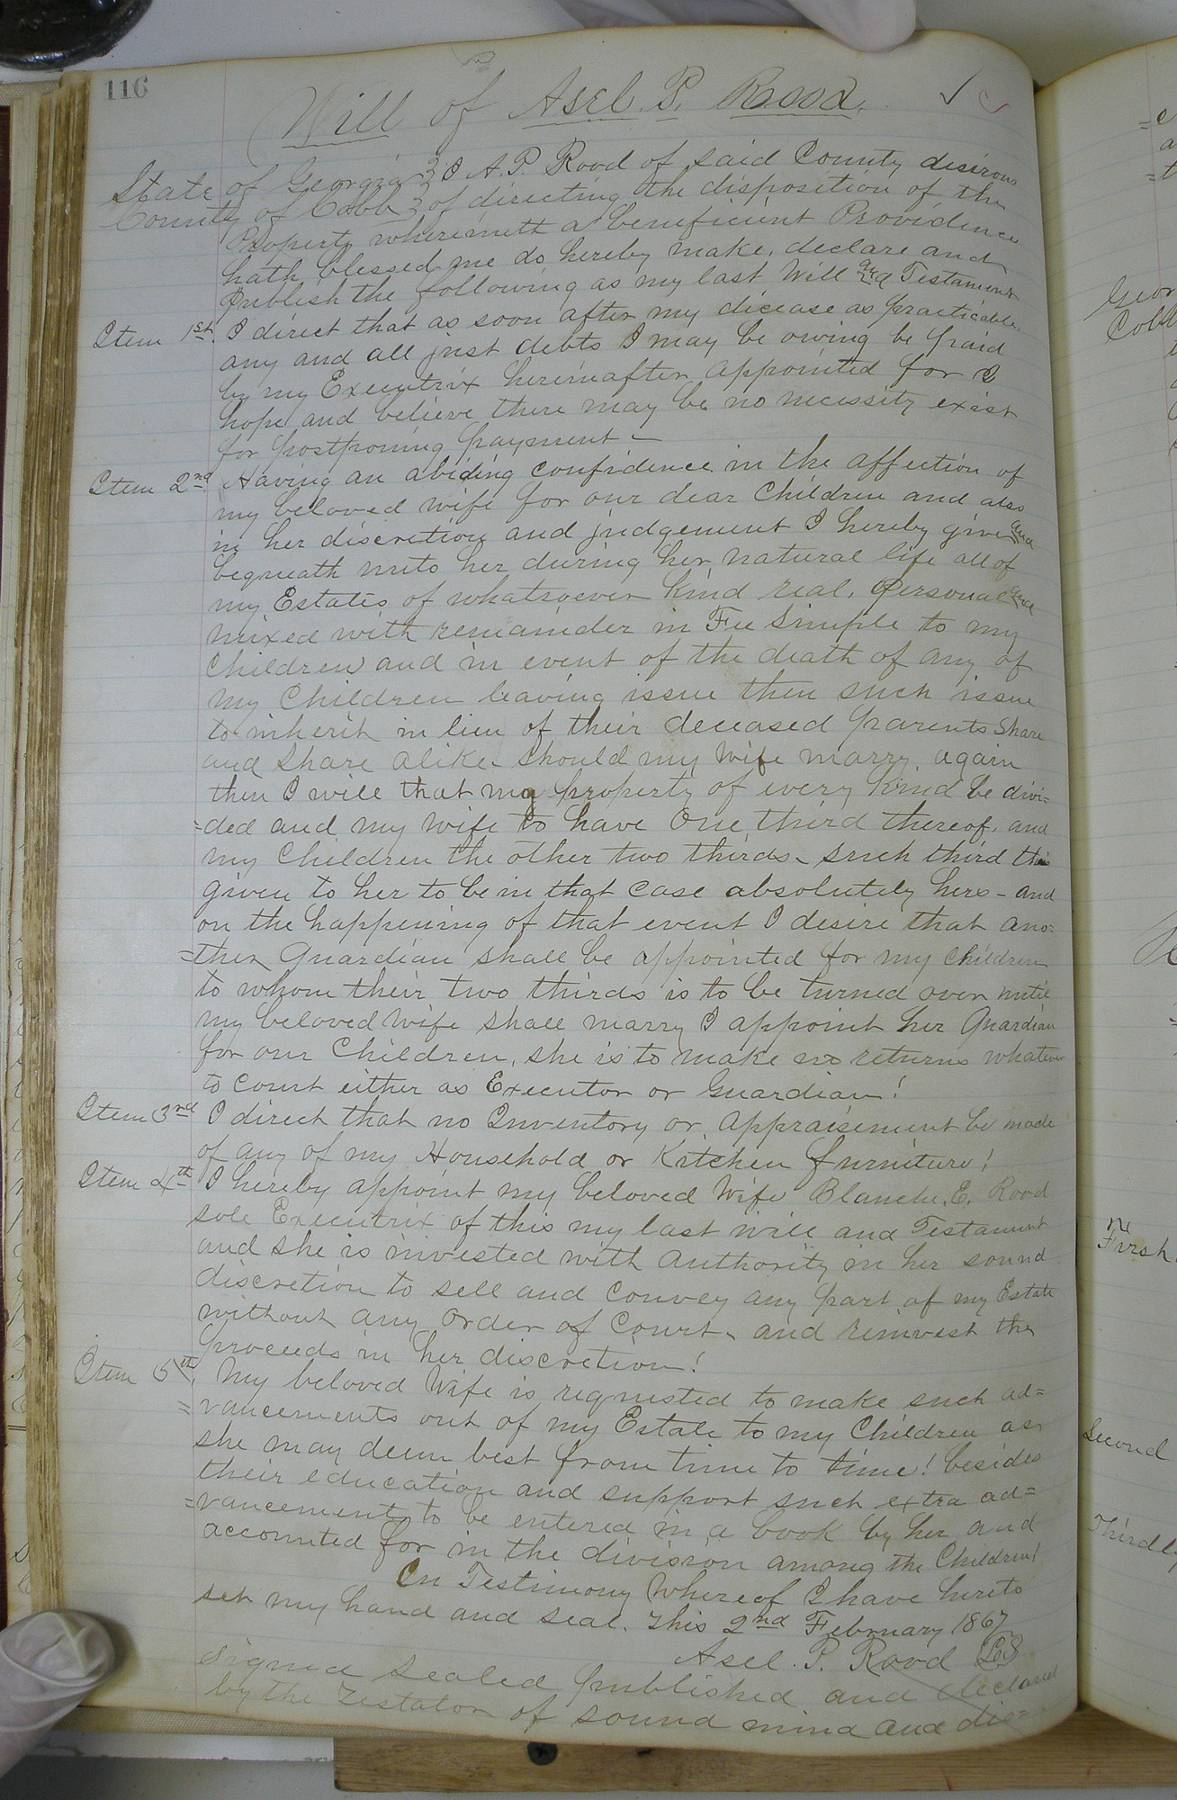 116
Will of Asel P. Rood
State of Georgia } I A. P. Rood of said County desirous
County of Cobb } of directing the disposition of the
Property wherewith a beneficient Providence
hath blessed me do hereby make, declare and
Publish the following as my last Will and Testament
Item 1st. I direct that as soon after my decease as practicable
any and all just debts I may be owing be paid
by my Executrix hereinafter appointed for I
hope and believe there may be no necessity exist
for postponing payment -
Item 2nd Having an abiding confidence in the affection of
my beloved wife for our dear Children and also
in her discretion and judgement I hereby give and
bequeath unto her during her natural life all of
my Estates of whatsoever kind real, personal and
mixed with remainder in Fee Simple to my
Children and in event of the death of any of
my Children leaving issue then such issue
to inherit in lieu of their deceased parents Share
and Share alike. Should my Wife marry again
then I will that my property of every kind be divi-
=ded and my Wife to have One third thereof. and
my Children the other two thirds - such third thus
given to her to be in that case absolutely hers - and
on the happening of that event I desire that ano=
=ther Guardian shall be appointed for my Children
to whom their two thirds is to be turned over until
my beloved Wife shall marry I appoint her Guardian
for our Children, she is to make no returns whatever
to court either as Executor or Guardian!
Item 3rd I direct that no Inventory or appraisement be made
of any of my Household or Kitchen furniture!
Item 4th I hereby appoint my beloved Wife Blanche E. Rood
sole Executrix of this my last will and Testament
and she is invested with Authority in her sound
discretion to sell and convey any part of my Estate
without any order of Court - and reinvest the
proceeds in her discretion!
Item 5th. My beloved Wife is requested to make such ad=
=vancements out of my Estate to my Children as
she may deem best from time to time! besides
their education and support such extra ad=
=vancements to be entered in a book by her and
accounted for in the division among the Children!
In Testimony Whereof I have hereto
set my hand and seal. This 2nd February 1867
Asel. P. Rood LS
Signed Sealed published and declared
by the Testator of sound mind and dis=
Geor
Cobb
First
Second
Thirdly